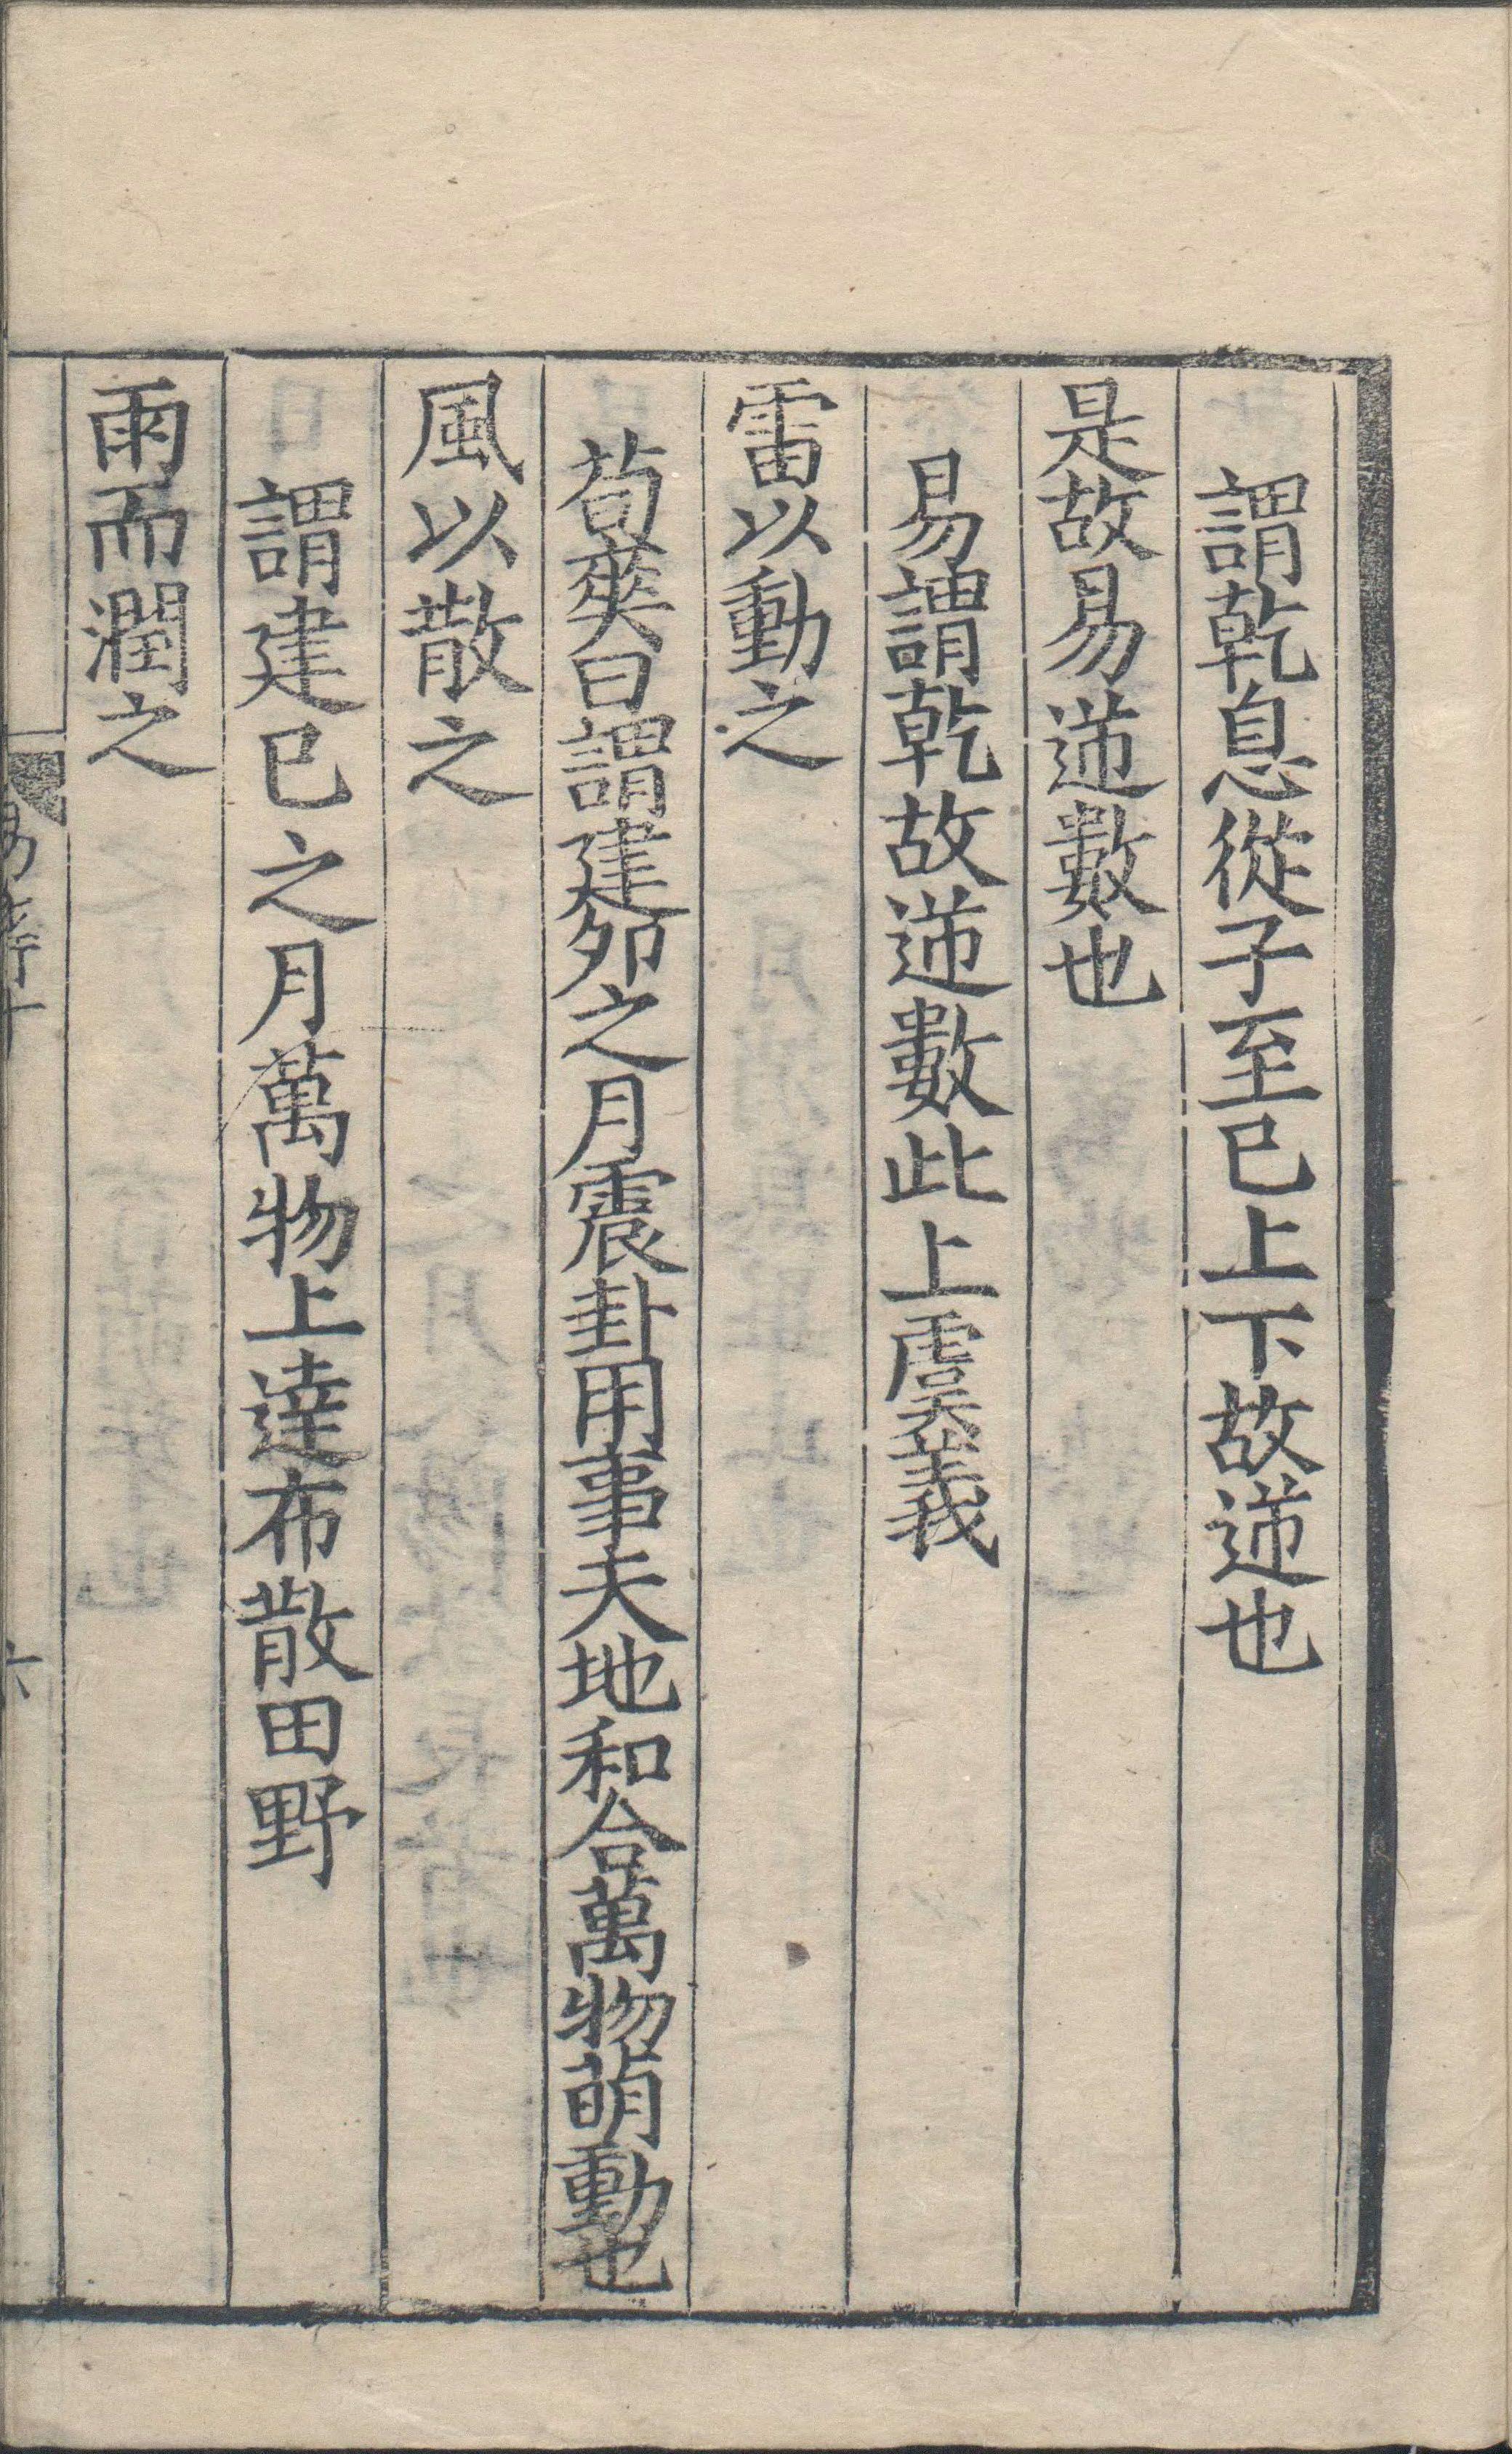 謂乾息從子至巳上下故逆也
是故易逆數也
易謂乾故逆數此上虞義
雷以動之
荀爽曰謂建卯之月震卦用事天地和合萬物萌動也
風以散之
謂建巳之月萬物上達布散田野
雨而潤之
六